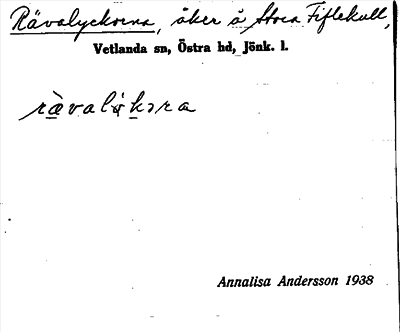 Rävalyckorna, åker å Stora Fiflekull,
Vetlanda sn, Östra hd, Jönk. l.
rävalykɔra
Annalisa Andersson 1938